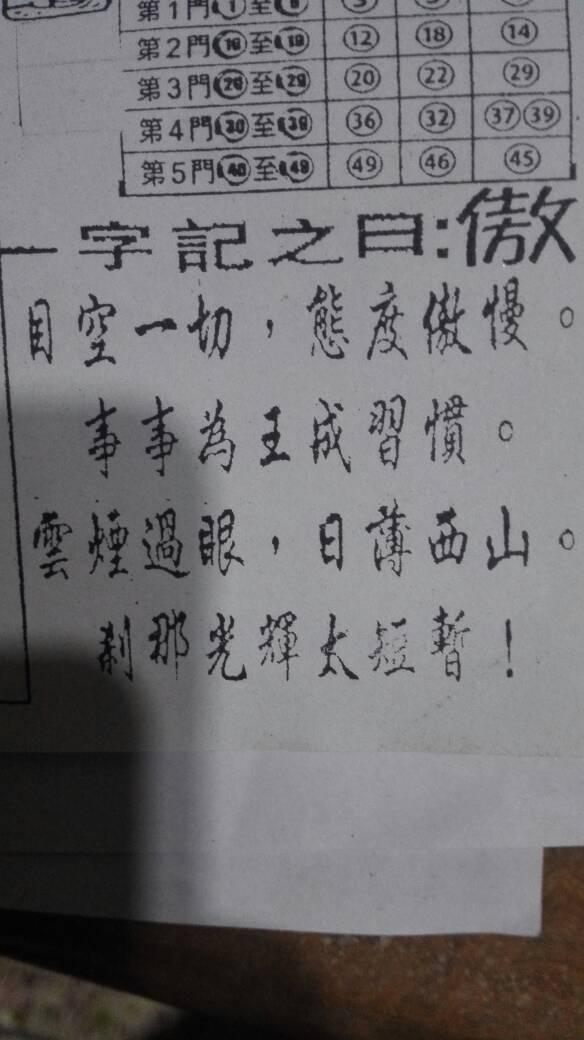 第1門①至
第2門⑩至⑲ ⑫ ⑱ ⑭
第3門⑳至㉙ ⑳ ㉒ ㉙
第4門㉚至㊴ ㊱ ㉜ ㊲㊴
第5門㊵至㊾ ㊾ ㊻ ㊺
一字記之曰:傲
目空一切，態度傲慢。
事事為王成習慣。
雲煙過眼，日薄西山。
剎那光輝太短暫！